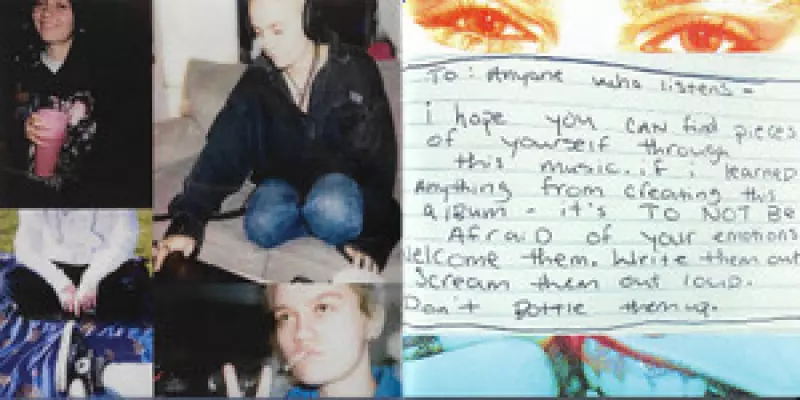 To: Anyone who listens -
i hope you CAN find pieces
of yourself through
this music. if i learned
Anything from creating this
album - it's TO NOT BE
AfraiD of your emotions
Welcome them. Write them out
Scream them out loud.
Don't Bottle them up.